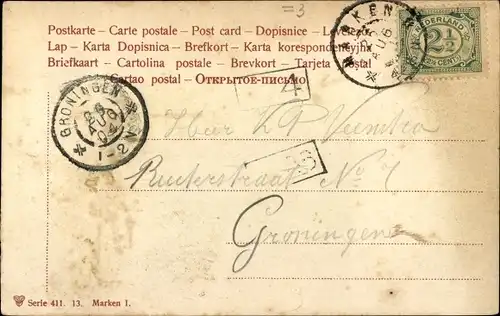 =3
Postkarte – Carte postale – Post card – Dopisnice – Levelező
Lap – Karta Dopisnica – Brefkort – Karta korespondencyjna
Briefkaart – Cartolina postale – Brevkort – Tarjeta Postal
Cartao postal – Открытое-письмо
MARKEN
AUG
NEDERLAND
2½
CENT
GRONINGEN
AUG
04
1-2 N
4
Heer
Ruiterstraat No 7
Groningen
Serie 411. 13. Marken I.